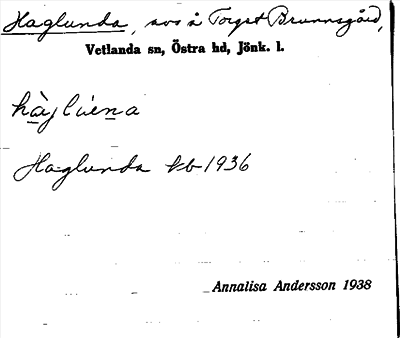 Haglunda, avs å Torget Brunnsgård,
Vetlanda sn, Östra hd, Jönk. l.
Haglunda kb 1936
Annalisa Andersson 1938